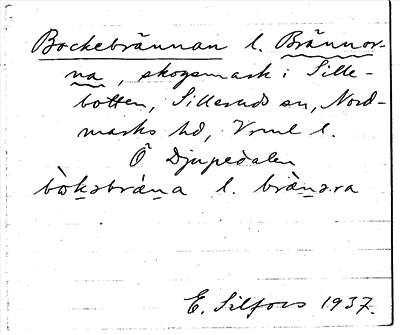 Bockebrännan l. Brännor-
na, skogsmark i Sille-
botten, Sillerud sn, Nord-
marks hd, Vrml l.
Ö Djupedalen
l.
E. Silfors 1937.